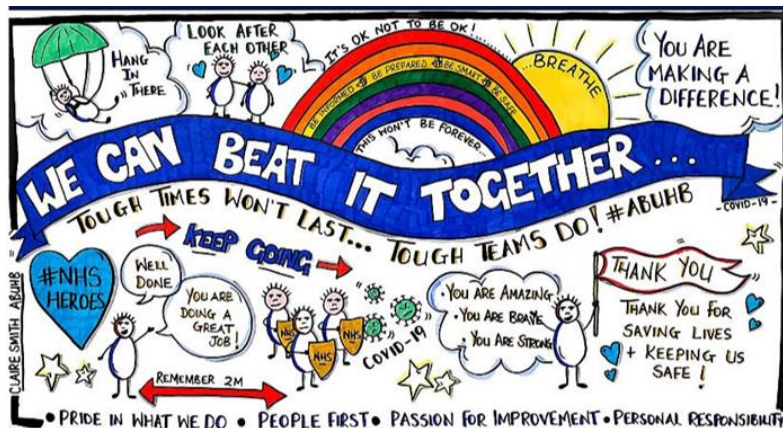 HANG
IN
THERE
LOOK AFTER
EACH OTHER
IT'S OK NOT TO BE OK!
BE INFORMED BE PREPARED BE SMART BE SAFE
THIS WON'T BE FOREVER...
...BREATHE
YOU ARE
MAKING A
DIFFERENCE!
WE CAN BEAT IT TOGETHER...
TOUGH TIMES WON'T LAST... TOUGH TEAMS DO! #ABUHB
-COVID-19-
KEEP GOING
#NHS
HEROES
WELL
DONE
YOU ARE
DOING A
GREAT
JOB!
REMEMBER 2M
NHS
NHS
NHS
COVID-19
• YOU ARE AMAZING
• YOU ARE BRAVE
• YOU ARE STRONG
THANK YOU
THANK YOU FOR
SAVING LIVES
+ KEEPING US
SAFE!
CLAIRE SMITH ABUHB
• PRIDE IN WHAT WE DO • PEOPLE FIRST • PASSION FOR IMPROVEMENT • PERSONAL RESPONSIBILITY